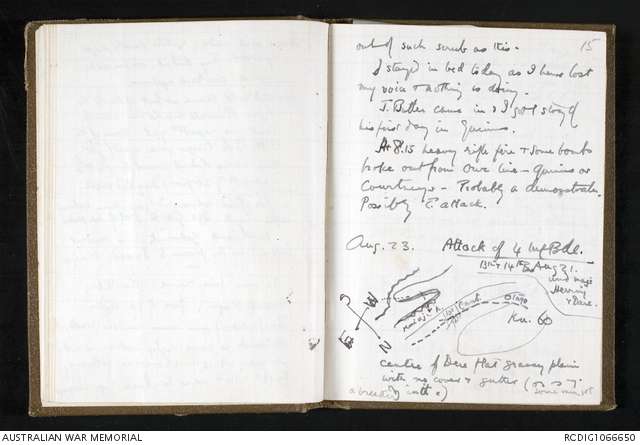 15
out of such scrub as this -
I stayed in bed today as I have lost
my voice & nothing is doing.
J. Butler came in & I got story of
his first day in Quinns.
At 8.15 heavy rifle fire & some bombs
broke out from our line - Quinns or
Courtneys - Probably a demonstratn.
Possibly T. attack.
Aug. 23. Attack of 4 Inf Bde.
13th & 14th Bns Aug 21.
under
Herring
& Dare.
W
E
N
Ku. 60
centre of Dere flat grassy plain
with no cover & gutter (or
a breadth with
AUSTRALIAN WAR MEMORIAL
RCDIG1066650